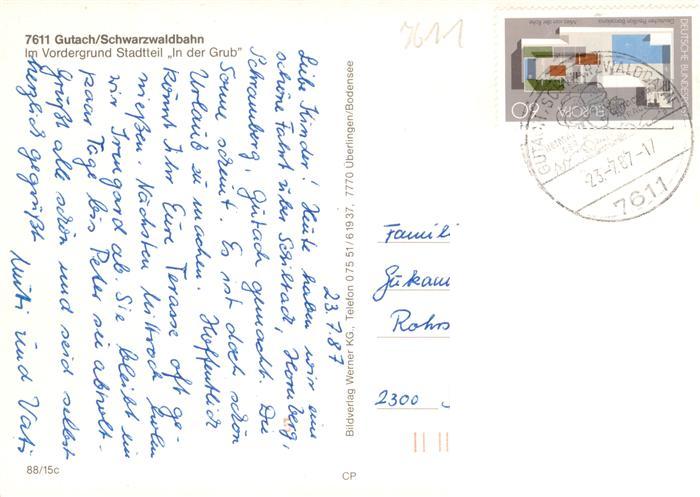 7611 Gutach/Schwarzwaldbahn
Im Vordergrund Stadtteil „In der Grub"
7611
23.7.87
Liebe Kinder! Heute haben wir eine
schöne Fahrt über Schiltach, Hornberg,
Schramberg, Gutach gemacht. Die
Sonne scheint. Es ist doch schön
Urlaub zu machen. Hoffentlich
könnt Ihr Eure Terasse oft ge-
nießen. Nächsten Mittwoch holen
wir Irmgard ab. Sie bleibt ein
paar Tage bis Peter sie abholt.
Grüßt alle schön und seid selbst
herzlich gegrüßt Mutti und Vati
Bildverlag Werner KG., Telefon 07551/61937, 7770 Überlingen/Bodensee
88/15c
CP
Deutscher Pavillon Barcelona
Mies van der Rohe
DEUTSCHE BUNDESPOST
60
EUROPA
23.-7.87-17
7611
Famili
Rohrs
2300